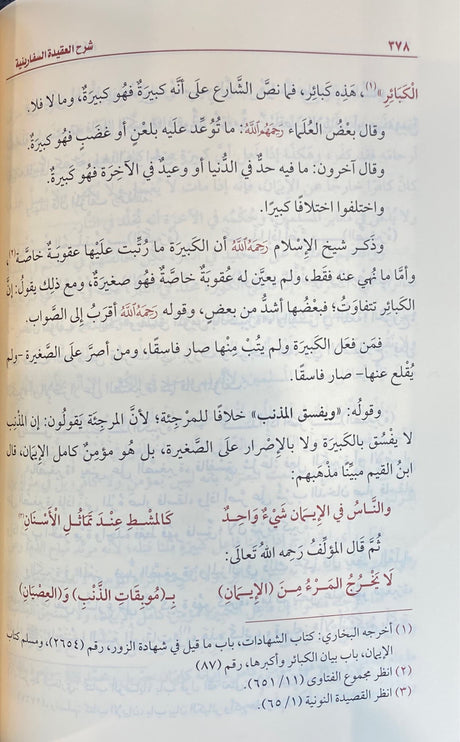 ٣٧٨ شرح العقيدة السفارينية
الْكَبَائِرِ»(١)، هَذِه كَبائِر، فما نصَّ الشَّارع علَى أنَّه كبيرةٌ فهُو كبيرَةٌ، وما لا فلا.
وقال بعْضُ العُلَماء رَحِمَهُمُ اللَّهُ: ما تُوُعِّد علَيه بلَعْنٍ أو غضَبٍ فهُو كَبيرة.
وقال آخرون: ما فيه حدٌّ في الدُّنيا أو وعيدٌ في الآخِرَة فهُو كَبيرةٌ.
واختلفوا اختلافًا كبيرًا.
وذَكر شيخ الإسْلام رَحِمَهُ اللَّهُ أن الكَبيرَة ما رُتِّبت علَيها عقوبَةٌ خاصَّة(٢)،
وأمَّا ما نُهي عنه فقط، ولم يعيَّن له عُقوبَةٌ خاصَّةٌ فهُو صغيرَةٌ، ومع ذلك يقولُ: إنَّ
الكبائر تتفاوَتُ؛ فبعْضُها أشدُّ من بعضٍ، وقوله رَحِمَهُ اللَّهُ أقرَبُ إلى الصَّواب.
فمَن فعَل الكَبيرَة ولم يتُبْ مِنْها صار فاسقًا، ومن أصرَّ علَى الصَّغيرة -ولم
يُقْلع عنها- صار فاسقًا.
وقولُه: «ويفسق المذنب» خلافًا للمرجِئَة؛ لأنَّ المرجِئَة يَقولُون: إن المذْنِب
لا يَفْسُق بالكَبيرَة ولا بالإصْرار علَى الصَّغيرة، بل هُو مؤمِنٌ كامل الإيمَان، قال
ابنُ القيم مبيِّنًا مذْهَبهم:
والنَّاسُ في الإيمَانِ شَيْءٌ وَاحِـدٌ كالمشْـطِ عِنْـدَ تمَاثُـلِ الْأَسْنَانِ(٣)
ثُمَّ قَال المؤلِّفُ رَحِمه اللهُ تَعالَى:
لَا يَخْـرُجُ المَـرْءُ مِـنَ (الْإِيمَـانِ) بِـ(مُوبِقَاتِ الذَّنْبِ) وَ(العِصْيَانِ)
(١) أخرجه البخاري: كتاب الشهادات، باب ما قيل في شهادة الزور، رقم (٢٦٥٤)، ومسلم كتاب
الإيمان، باب بيان الكبائر وأكبرها، رقم (٨٧)
(٢) انظر مجموع الفتاوى (١١/ ٦٥١).
(٣) انظر القصيدة النونية (١/ ٦٥).